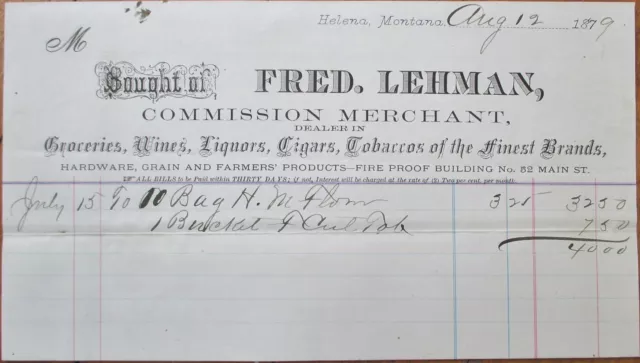 Helena, Montana, Aug 12 1879
M
Bought of FRED. LEHMAN,
COMMISSION MERCHANT,
DEALER IN
Groceries, Wines, Liquors, Cigars, Tobaccos of the Finest Brands,
HARDWARE, GRAIN AND FARMERS' PRODUCTS—FIRE PROOF BUILDING No. 52 MAIN ST.
ALL BILLS to be Paid within THIRTY DAYS; if not, Interest will be charged at the rate of (2) Two per cent. per month.
July 15 To 10 Bag H. M Flour 325 3250
1 Bucket F Tob 750
4000